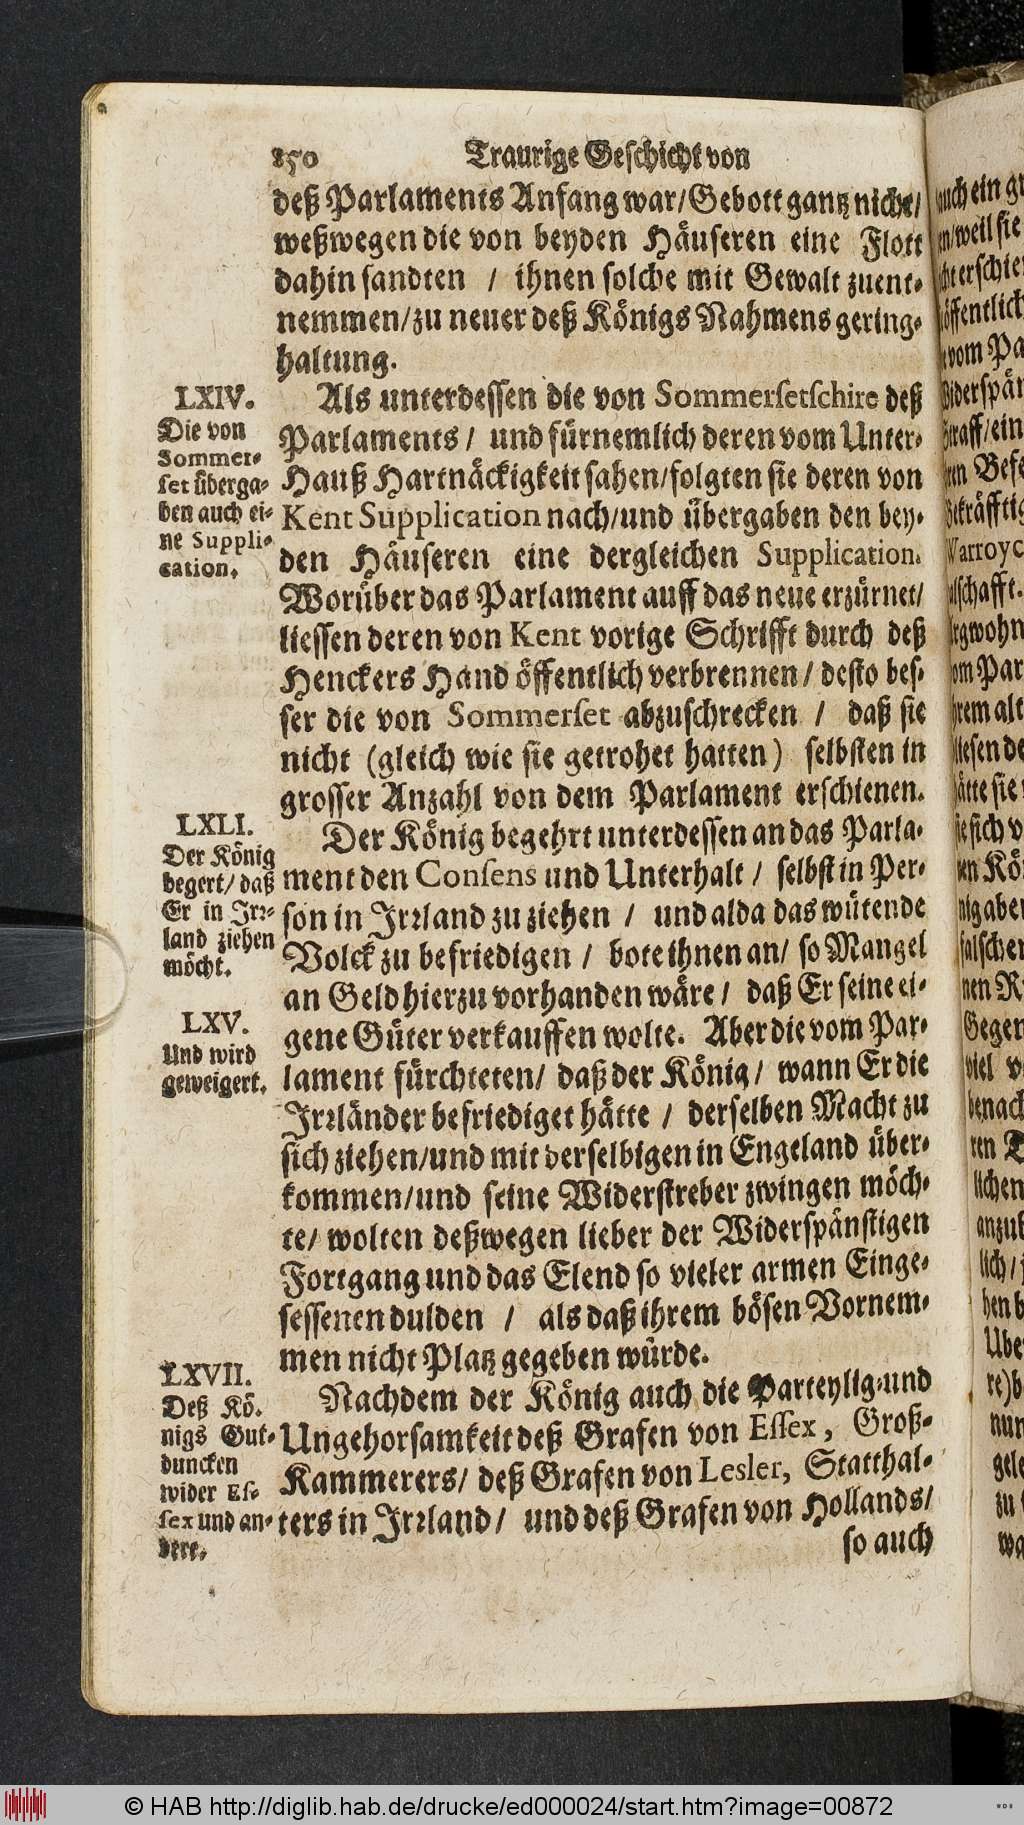 850 Traurige Geschicht von
deß Parlaments Anfang war/Gebott gantz nicht/
weßwegen die von beyden Häuseren eine Flott
dahin sandten / ihnen solche mit Gewalt zuent-
nemmen/zu neuer deß Königs Nahmens gering-
haltung.
LXIV.
Die von
Sommer-
set überga-
ben auch ei-
ne Suppli-
cation.
Als unterdessen die von Sommersetschire deß
Parlaments / und fürnemlich deren vom Unter-
Hauß Hartnäckigkeit sahen/folgten sie deren von
Kent Supplication nach/und übergaben den bey-
den Häuseren eine dergleichen Supplication.
Worüber das Parlament auff das neue erzürnet/
liessen deren von Kent vorige Schrifft durch deß
Henckers Hand öffentlich verbrennen / desto bes-
ser die von Sommerset abzuschrecken / daß sie
nicht (gleich wie sie getrohet hatten) selbsten in
grosser Anzahl von dem Parlament erschienen.
LXLI.
Der König
begert/ daß
Er in Irr-
land ziehen
möcht.
Der König begehrt unterdessen an das Parla-
ment den Consens und Unterhalt / selbst in Per-
son in Irrland zu ziehen / und alda das wütende
Volck zu befriedigen / bote ihnen an/ so Mangel
an Geld hierzu vorhanden wäre / daß Er seine ei-
gene Güter verkauffen wolte. Aber die vom Par-
LXV.
Und wird
geweigert.
lament fürchteten/ daß der König / wann Er die
Irrländer befriediget hätte / derselben Macht zu
sich ziehen/und mit derselbigen in Engeland über-
kommen/und seine Widerstreber zwingen möch-
te/ wolten deßwegen lieber der Widerspänstigen
Fortgang und das Elend so vieler armen Einge-
sessenen dulden / als daß ihrem bösen Vornem-
men nicht Platz gegeben würde.
LXVII.
Deß Kö-
nigs Gut-
duncken
wider Es-
sex und an-
dere.
Nachdem der König auch die Parteylig-und
Ungehorsamkeit deß Grafen von Essex, Groß-
Kammerers/ deß Grafen von Lesler, Statthal-
ters in Irrland / und deß Grafen von Hollands/
so auch
© HAB http://diglib.hab.de/drucke/ed000024/start.htm?image=00872